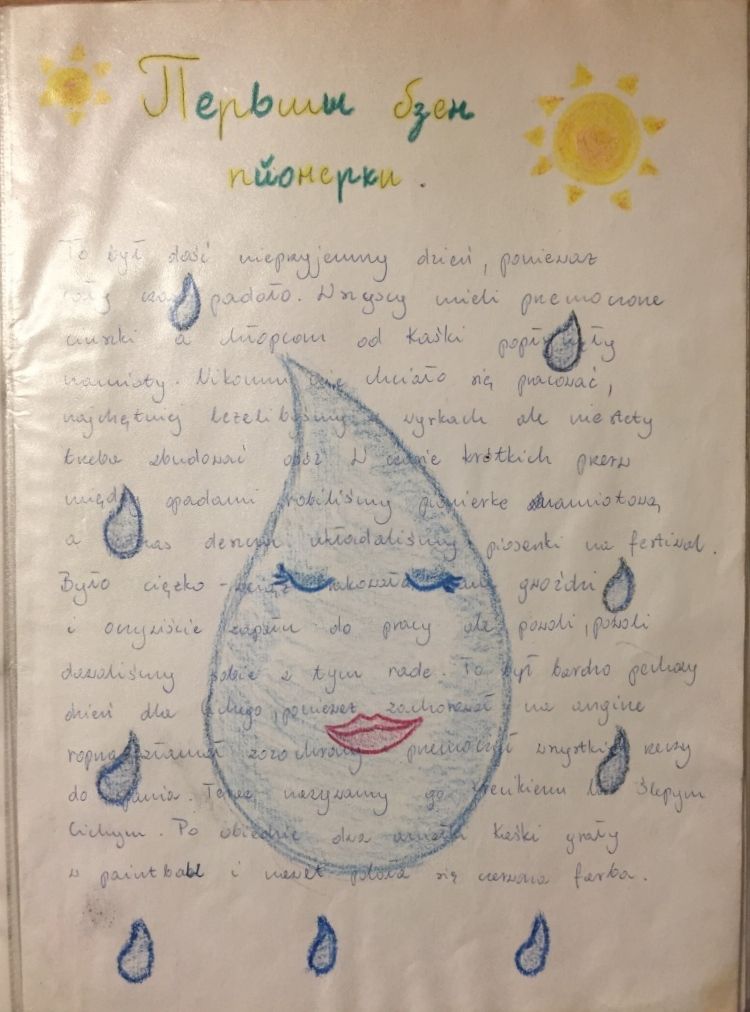 Первши бзен
пйонерки.
To był dość nieprzyjemny dzień, ponieważ
cały czas padało. Wszyscy mieli przemoczone
ciuszki a chłopcom od Kaśki popłynęły
namioty. Nikomu nie chciało się pracować,
najchętniej leżelibyśmy w wyrkach ale niestety
trzeba zbudować obóz. W czasie krótkich przerw
między opadami robiliśmy pionierkę namiotową,
a podczas deszczu układaliśmy piosenki na festiwal.
Było ciężko - wciąż brakowało nam gwoździ
i oczywiście zapału do pracy ale powoli, powoli
dawaliśmy sobie z tym radę. To był bardzo pechowy
dzień dla, ponieważ zachorował na anginę
ropną, złamał i przemoczył wszystkie rzeczy
do spania. Teraz nazywamy go Heńkiem lub Ślepym
Cichym. Po obiedzie dwa Kaśki grały
w paintball i nawet polała się czerwona farba.